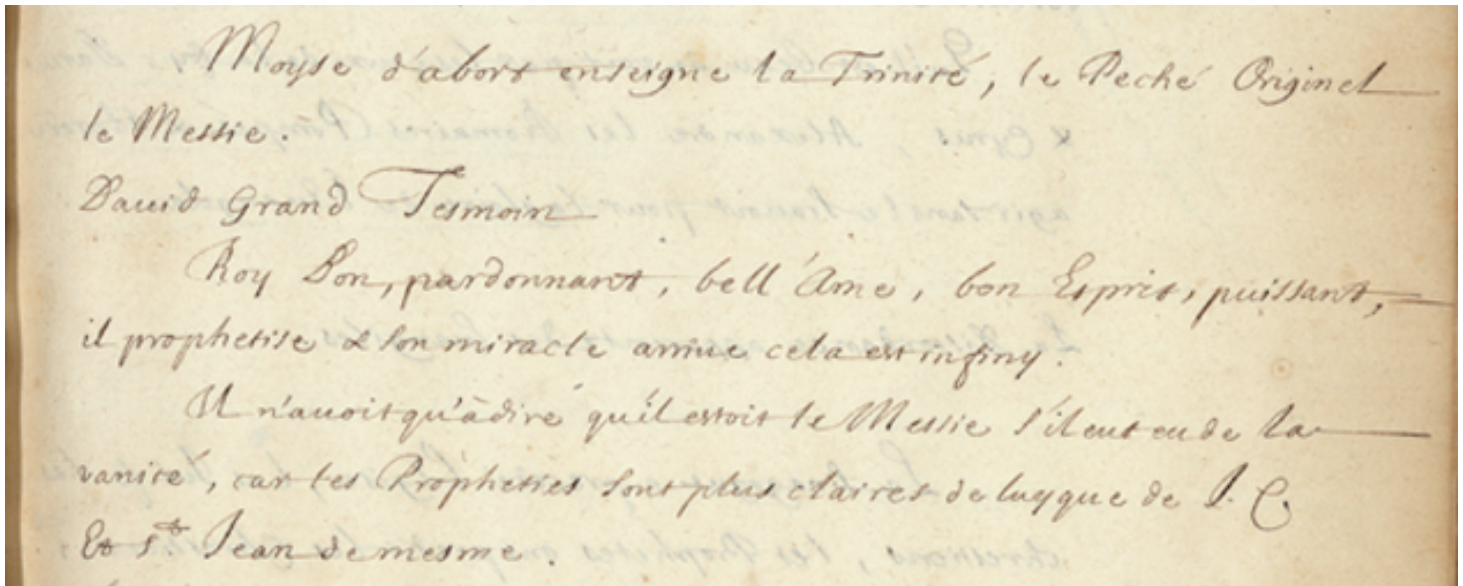 Moyse d'abort enseigne la Trinité, le Peché Originel
le Messie.
Dauid Grand Tesmoin
Roy Bon, pardonnant, bell'Ame, bon Esprit, puissant,
il prophetise & son miracle arriue cela est infiny.
Il n'auoit qu'à dire qu'il estoit le Messie s'il eut eu de la
vanité, car les Propheties sont plus claires de luy que de J. C.
Et St Jean de mesme.